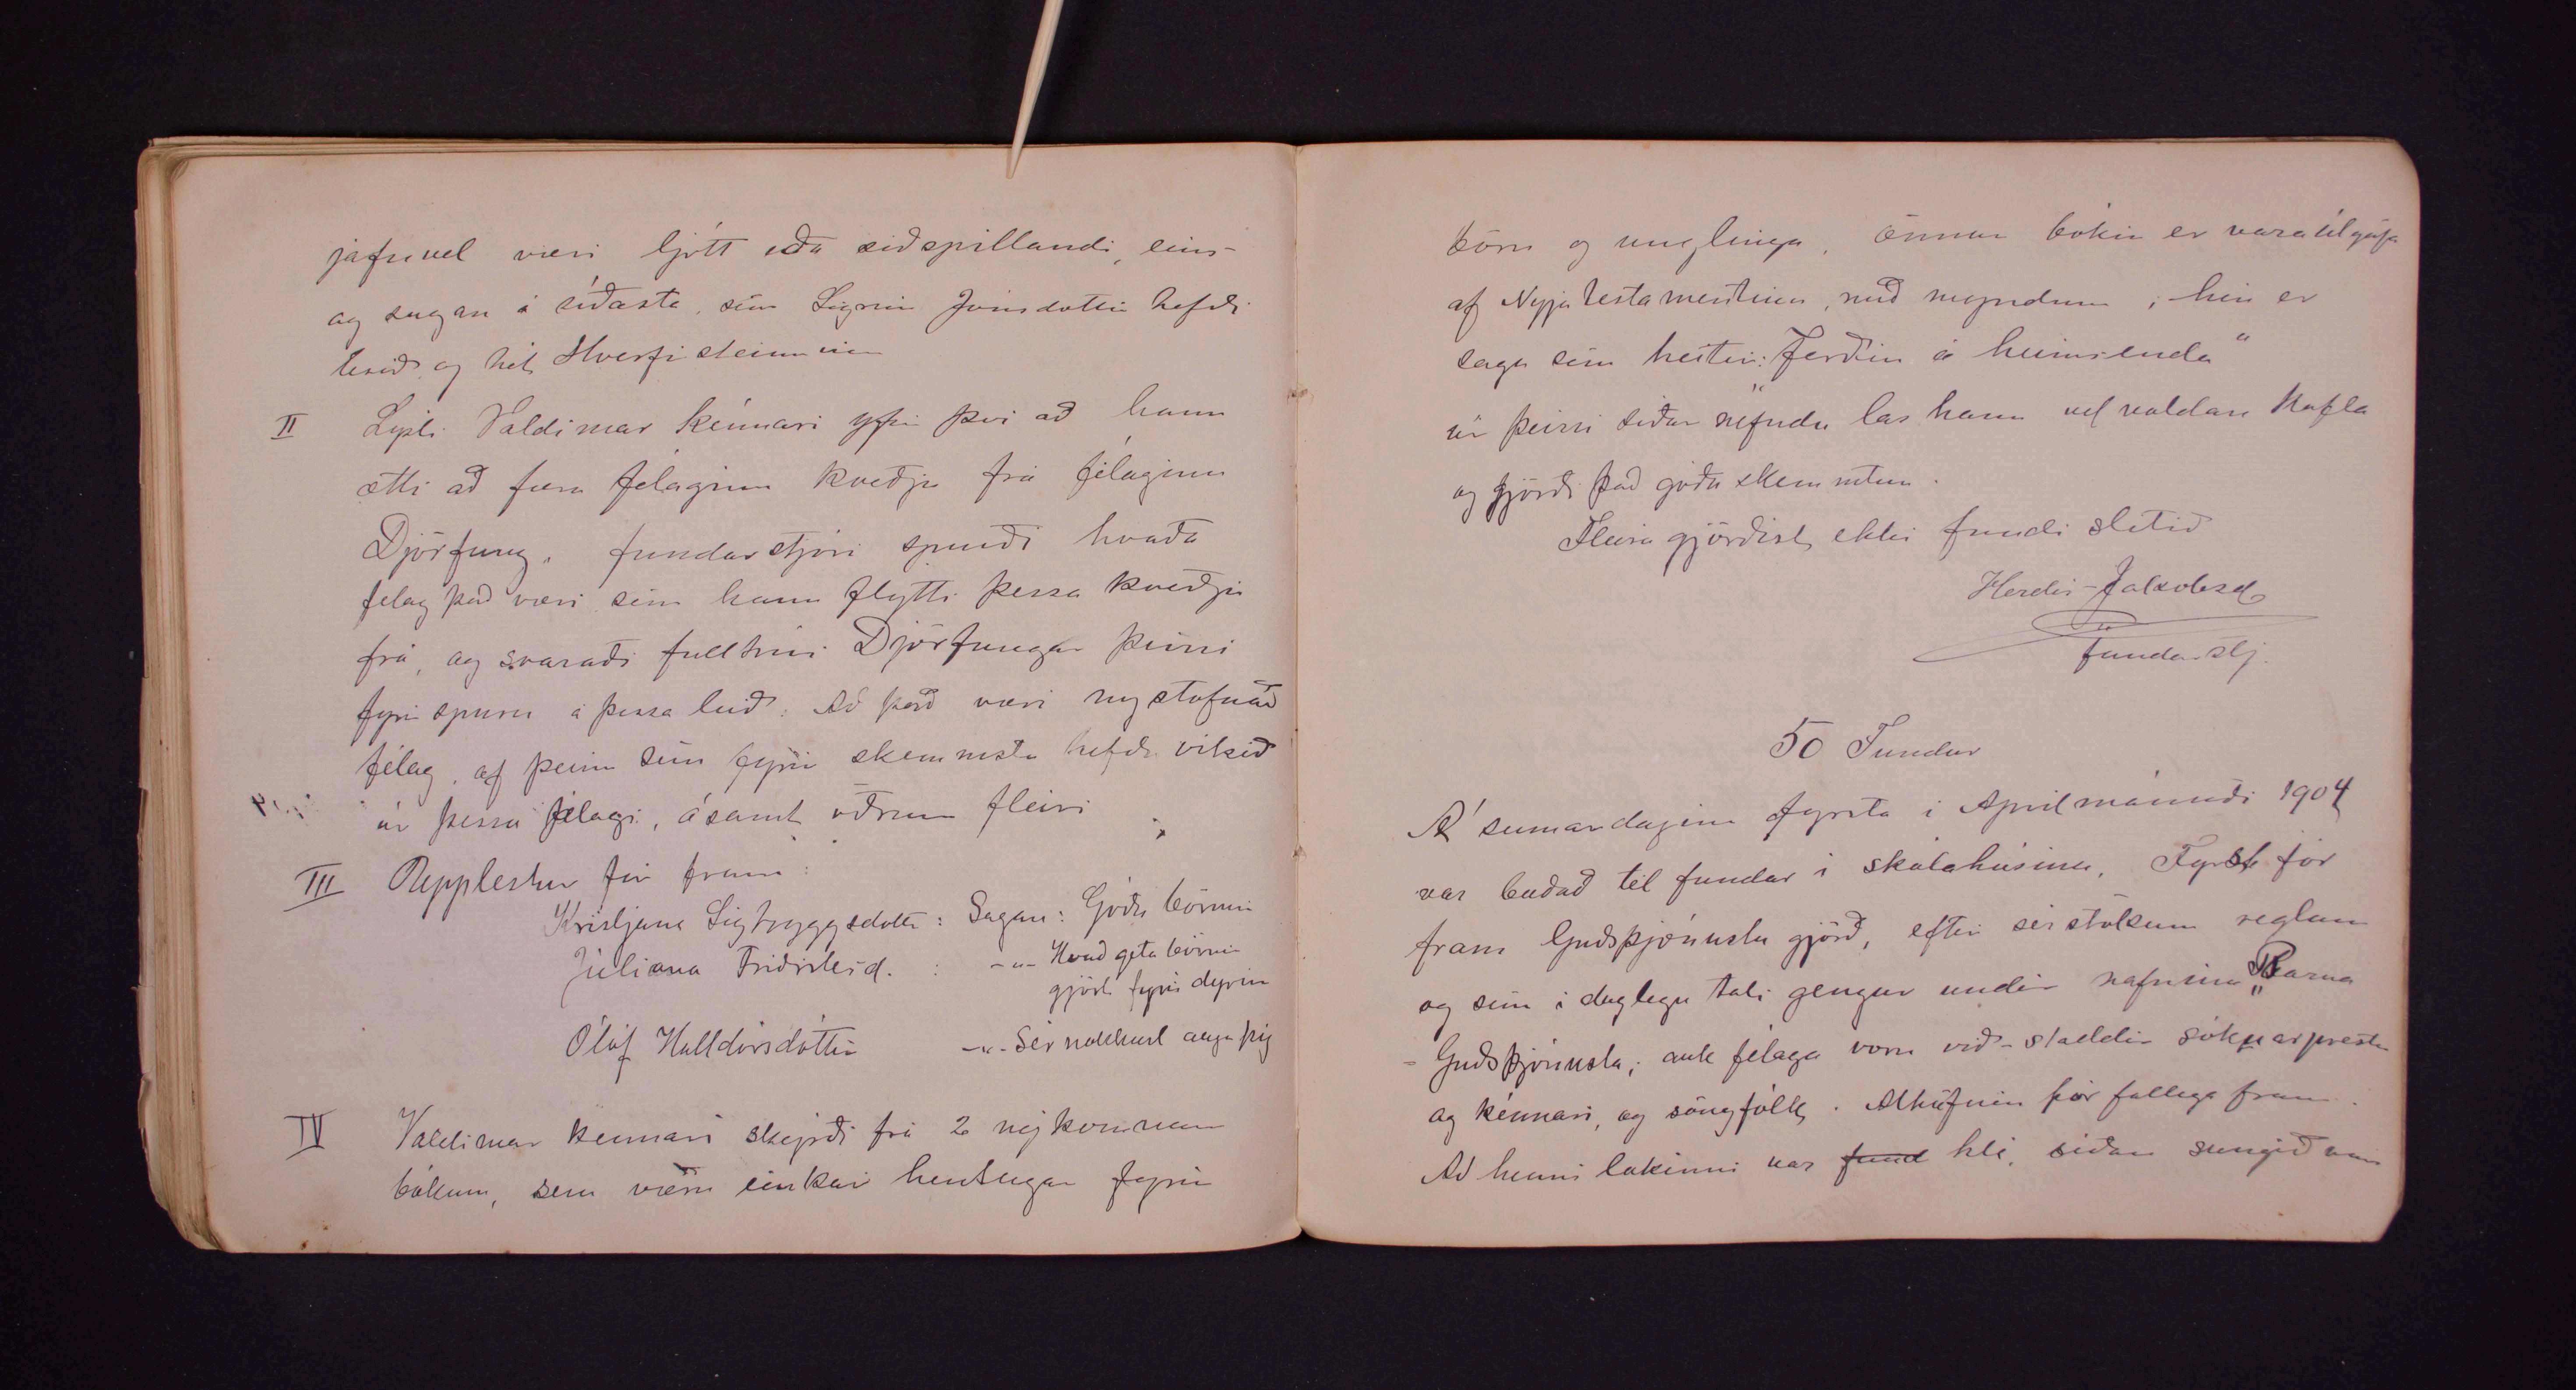 jafnvel væri ljótt eða siðspillandi, eins-
og sagan á síðasta, sem Sigrún Jónsdóttir hefði
lesið og hét Hverfisteinninn
II Lýsti Valdimar kénnari yfir því að hann
ætti að færa félaginu kveðju frá félaginu
Djörfung. fundarstjóri spurði hvaða
felag það væri sem hann flytti þessa kveðju
frá, og svaraði fulltrúi Djörfungar þeirri
fyrirspurn á þessa leið: Að það væri nystofnað
félag, af þeim sem fyrir skemmstu hefðu vikið
úr þessu félagi, ásamt öðrum fleiri
III Upplestur fór fram:
Kristjana Sigtryggsdottir: Sagan: Góðu börnin
Júliana Friðriksd. : -"- Hvað geta börnin
gjört fyrir dýrin
Ólöf Halldórsdóttir -"- Sér nokkurt auga þig
IV Valdimar kennari skýrði frá 2 nýkomnum
bókum, sem væru einkar hentugar fyrir
börn og unglinga, önnur bókin er vasaútgáfa
af Nýjatestamentinu, með myndum; hin er
saga sem heitir: „Ferðin á heimsenda“
úr þeirri síðar nefndu las hann vel valdan kafla
og gjörði það góða skemmtun.
Fleira gjörðist ekki fundi slitið
Herdís Jakobsd
fundarstj.
50 Fundur
Á sumardaginn fyrsta í Aprílmánuði 1904
var boðað til fundar í skólahúsinu. Fyrst fór
fram Guðsþjónustu gjörð, eftir sérstökum reglum
og sem í daglegu tali gengur undir nafninu „Barna
- Guðsþjónusta; auk félaga voru við-staddir sóknarprestur
og kénnari, og söngfólk. Athöfnin fór fallega fram.
Að henni lokinni var fund hlé, síðan sungið var